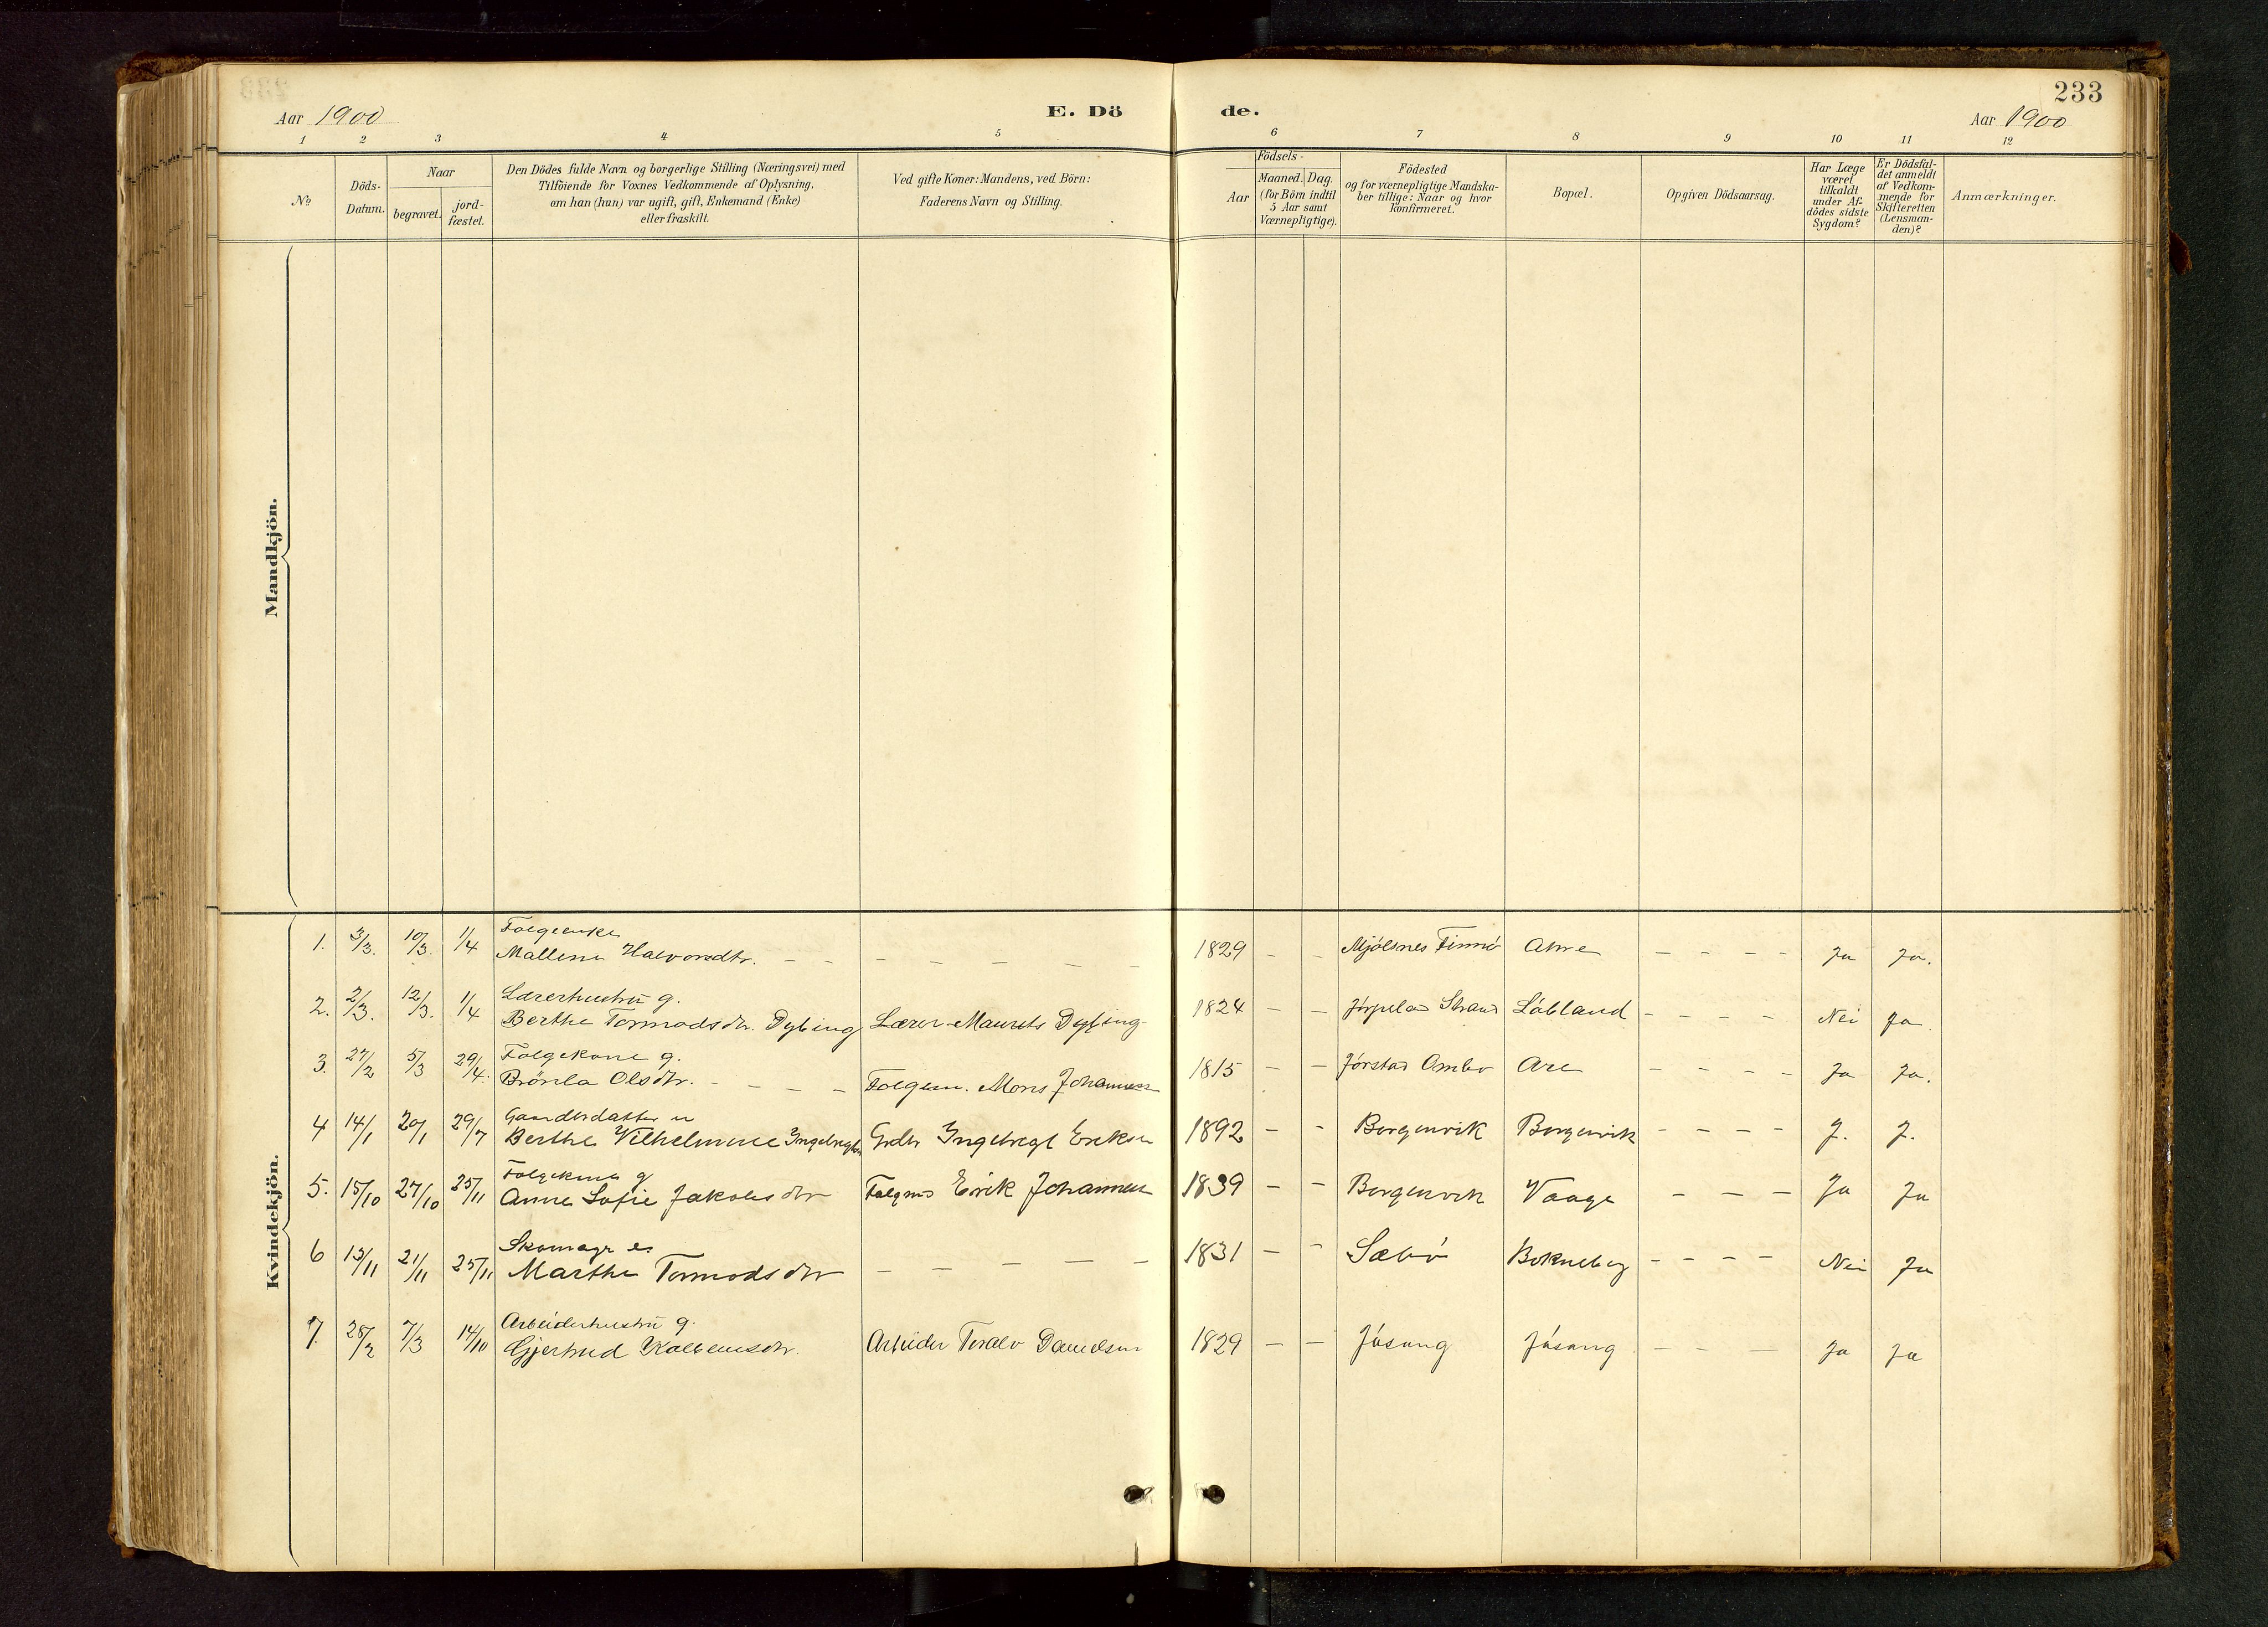 233
Aar 1900 E. Dö de. Aar 1900
1 2 3 4 5 6 7 8 9 10 11 12
№
Döds-
Datum.
Naar
begravet.
jord-
fæstet.
Den Dödes fulde Navn og borgerlige Stilling (Næringsvei) med
Tilföiende for Voxnes Vedkommende af Oplysning,
om han (hun) var ugift, gift, Enkemand (Enke)
eller fraskilt.
Ved gifte Koner: Mandens, ved Börn:
Faderens Navn og Stilling.
Födsels-
Aar
Maaned. Dag.
(for Börn indtil
5 Aar samt
Værnepligtige).
Födested
og for værnepligtige Mandska-
ber tillige: Naar og hvor
konfirmeret.
Bopæl.
Opgiven Dödsaarsag.
Har Læge
været
tilkaldt
under Af-
dödes sidste
Sygdom?
Er Dödsfal-
det anmeldt
af Vedkom-
mende for
Skifteretten
(Lensman-
den)?
Anmærkninger.
Mandkjön.
Kvindekjön.
Folgeenke
1. 3/3. 10/3. 1/4 Mallene Halvorsdtr. - - - - - - - - 1829 - - Mjölsnes Finnö Ahre - - - - Ja Ja.
Lærerhustru g.
2. 2/3. 12/3. 1/4 Berthe Tormodsdtr. Dybing Lærer Maurits Dybing 1824 - - Jörpeland Strand Löbland - - - - Nei Ja.
Folgekone g.
3. 27/2 5/3 29/4. Brönla Olsdtr. - - - - Folgem. Mons Johannesen 1815 - - Jörstad Ombo Are - - - - Ja Ja.
Gaardbrdatter u
4 14/1 20/1 29/7 Berthe Vilhelmine Ingebregtsd Grdbr Ingebregt Eriksen 1892 - - Borgenvik Borgenvik - - - - J. J.
Folgekone g
5. 15/10 27/10 25/11 Anne Sofie Jakobsdtr Folgmd Eirik Johannesen 1839 - - Borgenvik Vaage - - - Ja Ja
Skomagr e.
6 13/11 21/11 25/11 Marthe Tormodsdtr - - - - - 1831 - - Sæbö Bokneberg - - - - Nei Ja
Arbeiderhustru g.
7. 28/2 7/3 14/10 Gjertrud Kolbensdtr. Arbeider Toralv Danielsen 1829 - - Jösang Jösang - - - Ja Ja